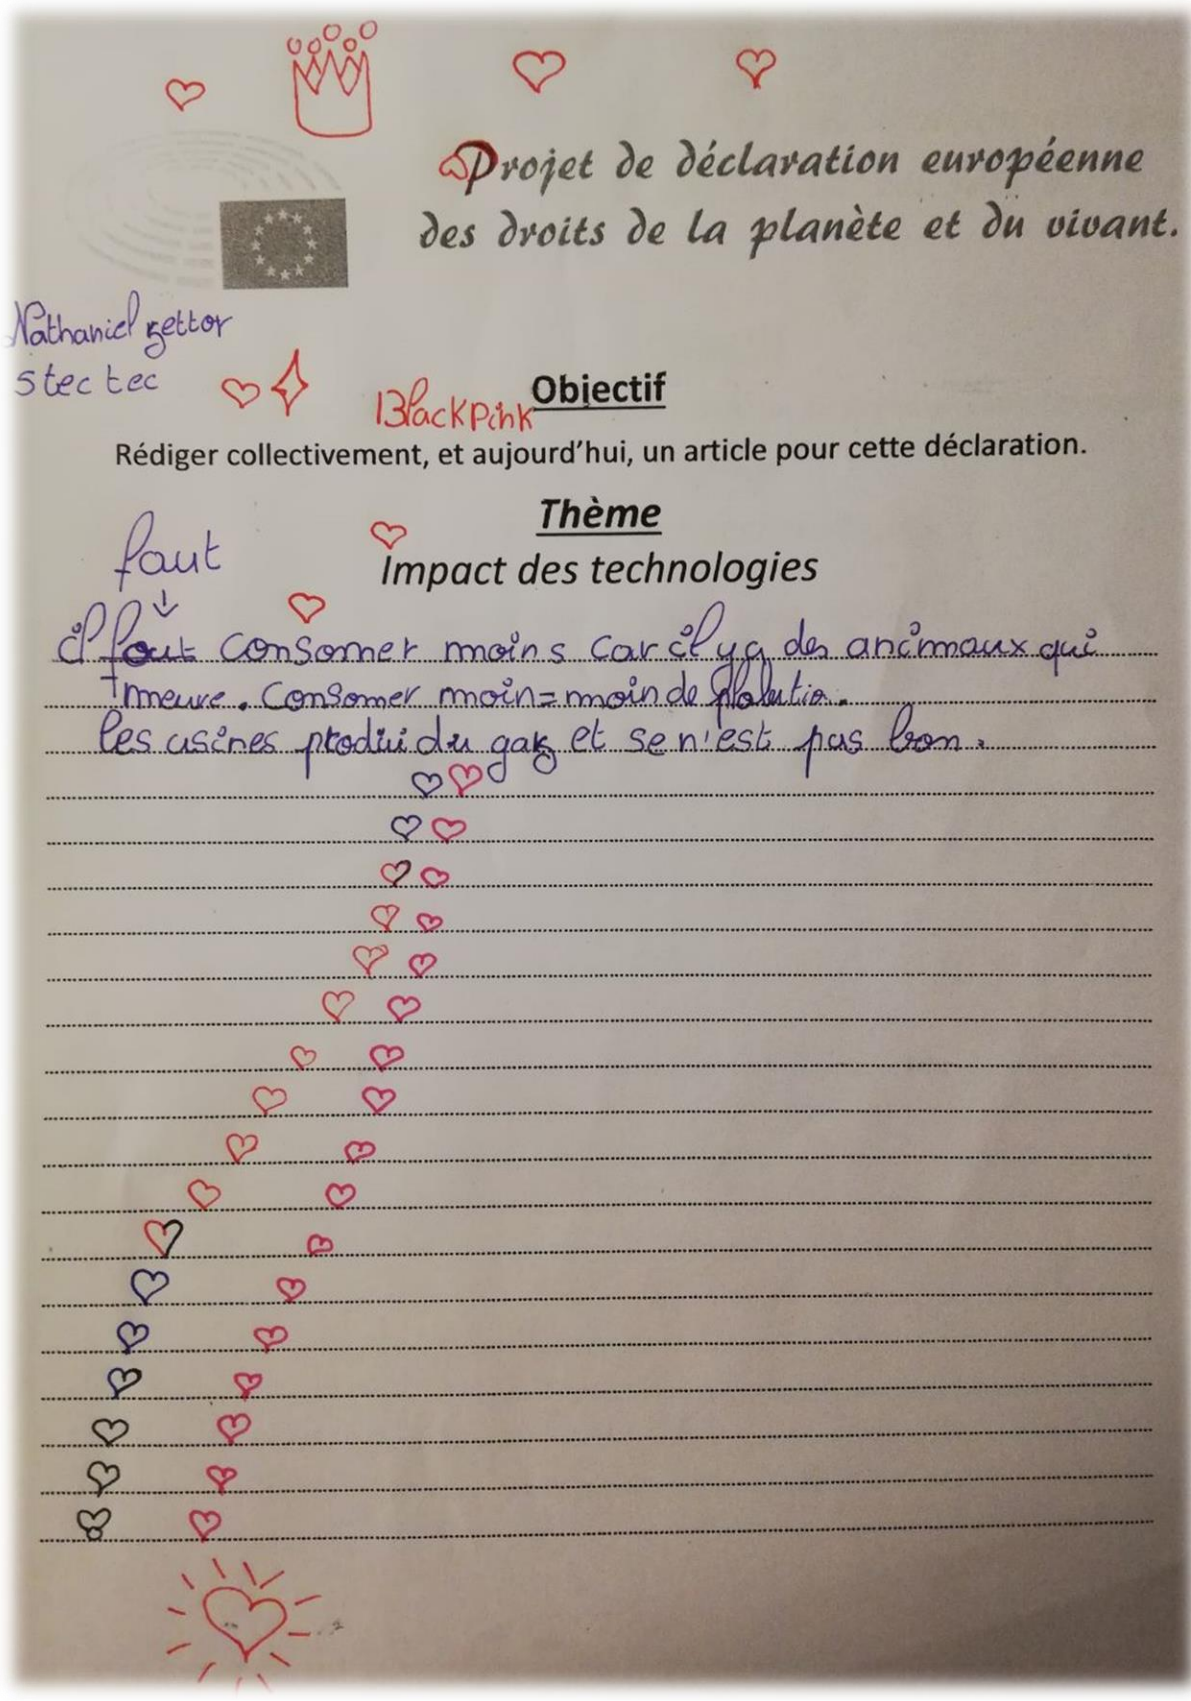 Projet de déclaration européenne
des droits de la planète et du vivant.
Nathaniel gettor
5tec tec
BlackPink
Objectif
Rédiger collectivement, et aujourd'hui, un article pour cette déclaration.
Thème
Impact des technologies
faut
il faut consomer moins car il y a des animaux qui
meure. Consomer moin=moin de
les usines produi du gaz et se n'est pas bon.